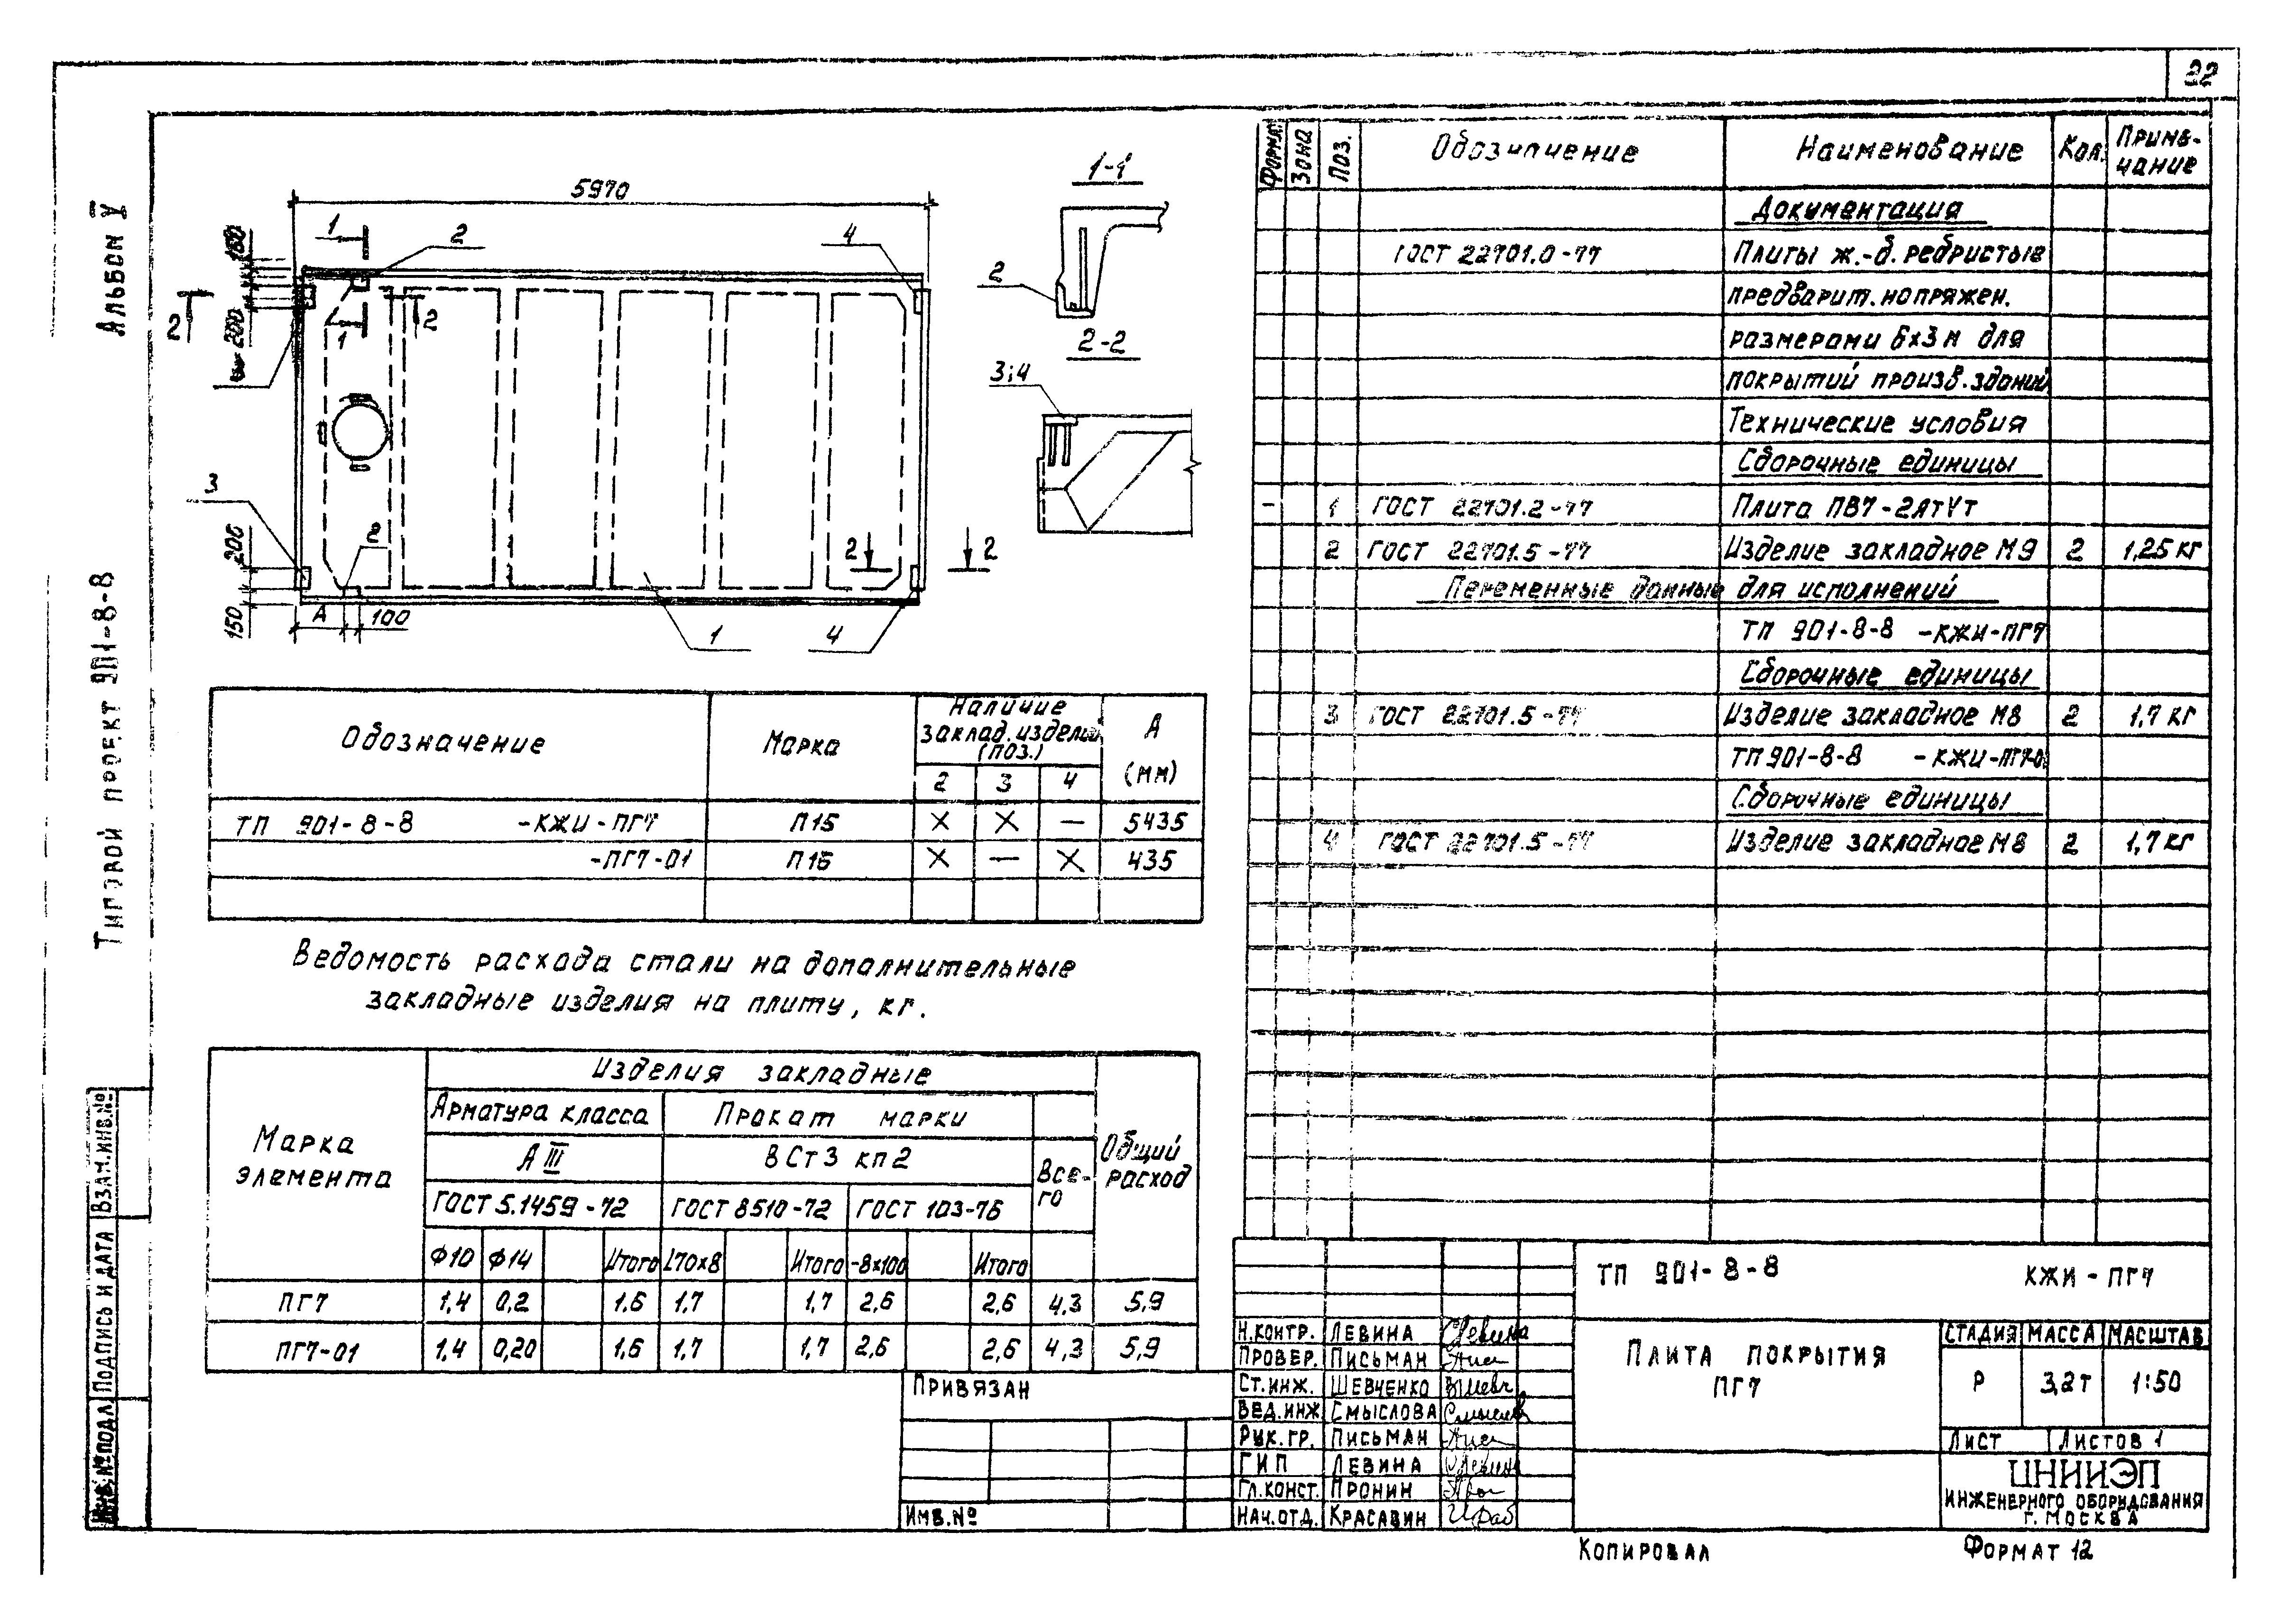 22
Альбом V
Типовой проект 901-8-8
5970
1
2
4
150
200
2
2
1
3
200
150
2
А
100
1
4
2
2
1-1
2
2-2
3;4
Обозначение
Марка
Наличие
заклад. изделий
(поз.)
А
(мм)
2
3
4
ТП 901-8-8 -КЖИ-ПГ7
П15
×
×
—
5435
-ПГ7-01
П16
×
—
×
435
Ведомость расхода стали на дополнительные
закладные изделия на плиту, кг.
Марка
элемента
Изделия закладные
Общий
расход
Арматура класса
Прокат марки
А III
ВСт3 кп2
Все-
го
ГОСТ 5.1459-72
ГОСТ 8510-72
ГОСТ 103-76
Ф10
Ф14
Итого
L70x8
Итого
-8x100
Итого
ПГ7
1,4
0,2
1,6
1,7
1,7
2,6
2,6
4,3
5,9
ПГ7-01
1,4
0,20
1,6
1,7
1,7
2,6
2,6
4,3
5,9
Формат
Зона
Поз.
Обозначение
Наименование
Кол.
Приме-
чание
Документация
ГОСТ 22701.0-77
Плиты ж.-б. ребристые
предварит. напряжен.
размерами 6х3м для
покрытий произв. зданий
Технические условия
Сборочные единицы
-
1
ГОСТ 22701.2-77
Плита ПВ7-2АтVт
2
ГОСТ 22701.5-77
Изделие закладное М9
2
1,25 кг
Переменные данные для исполнений
ТП 901-8-8 -КЖИ-ПГ7
Сборочные единицы
3
ГОСТ 22701.5-77
Изделие закладное М8
2
1,7 кг
ТП 901-8-8 -КЖИ-ПГ7-01
Сборочные единицы
4
ГОСТ 22701.5-77
Изделие закладное М8
2
1,7 кг
ТП 901-8-8
КЖИ-ПГ7
Плита покрытия
ПГ7
Стадия
Масса
Масштаб
Р
3,2т
1:50
Лист
Листов 1
ЦНИИЭП
инженерного оборудования
г. Москва
Н.контр. Левина
Провер. Письман
Ст.инж. Шевченко
Вед.инж Смыслова
Рук.гр. Письман
ГИП Левина
Гл.конст. Пронин
Нач.отд. Красавин
Привязан
Инв.№
Взам.инв.№
Подпись и дата
Инв.№подл
Копировал
Формат 12